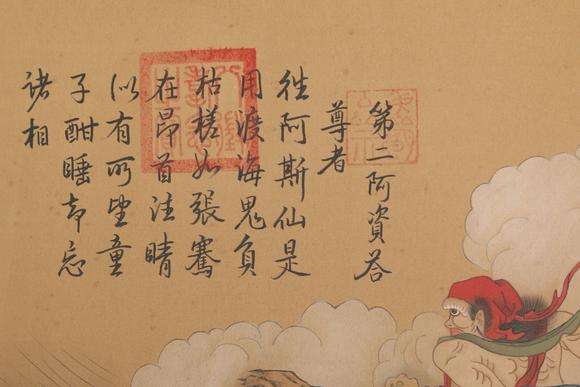 第二阿資荅
尊者
徃阿斯仙是
用渡海鬼負
枯槎如張騫
在昂首注晴
似有所望童
子酣睡却忘
诸相